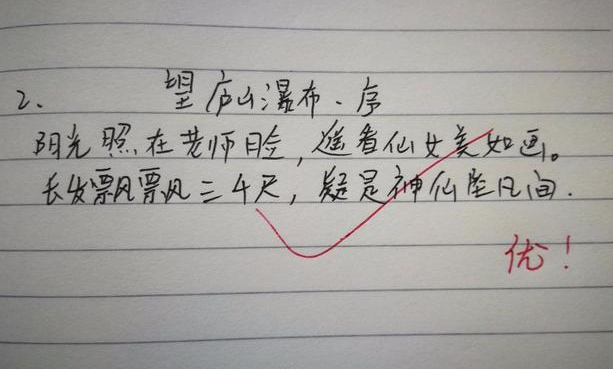 2. 望庐山瀑布、序
阳光照在老师脸，遥看仙女美如画。
长发飘飘三4尺，疑是神仙坠凡间.
优！